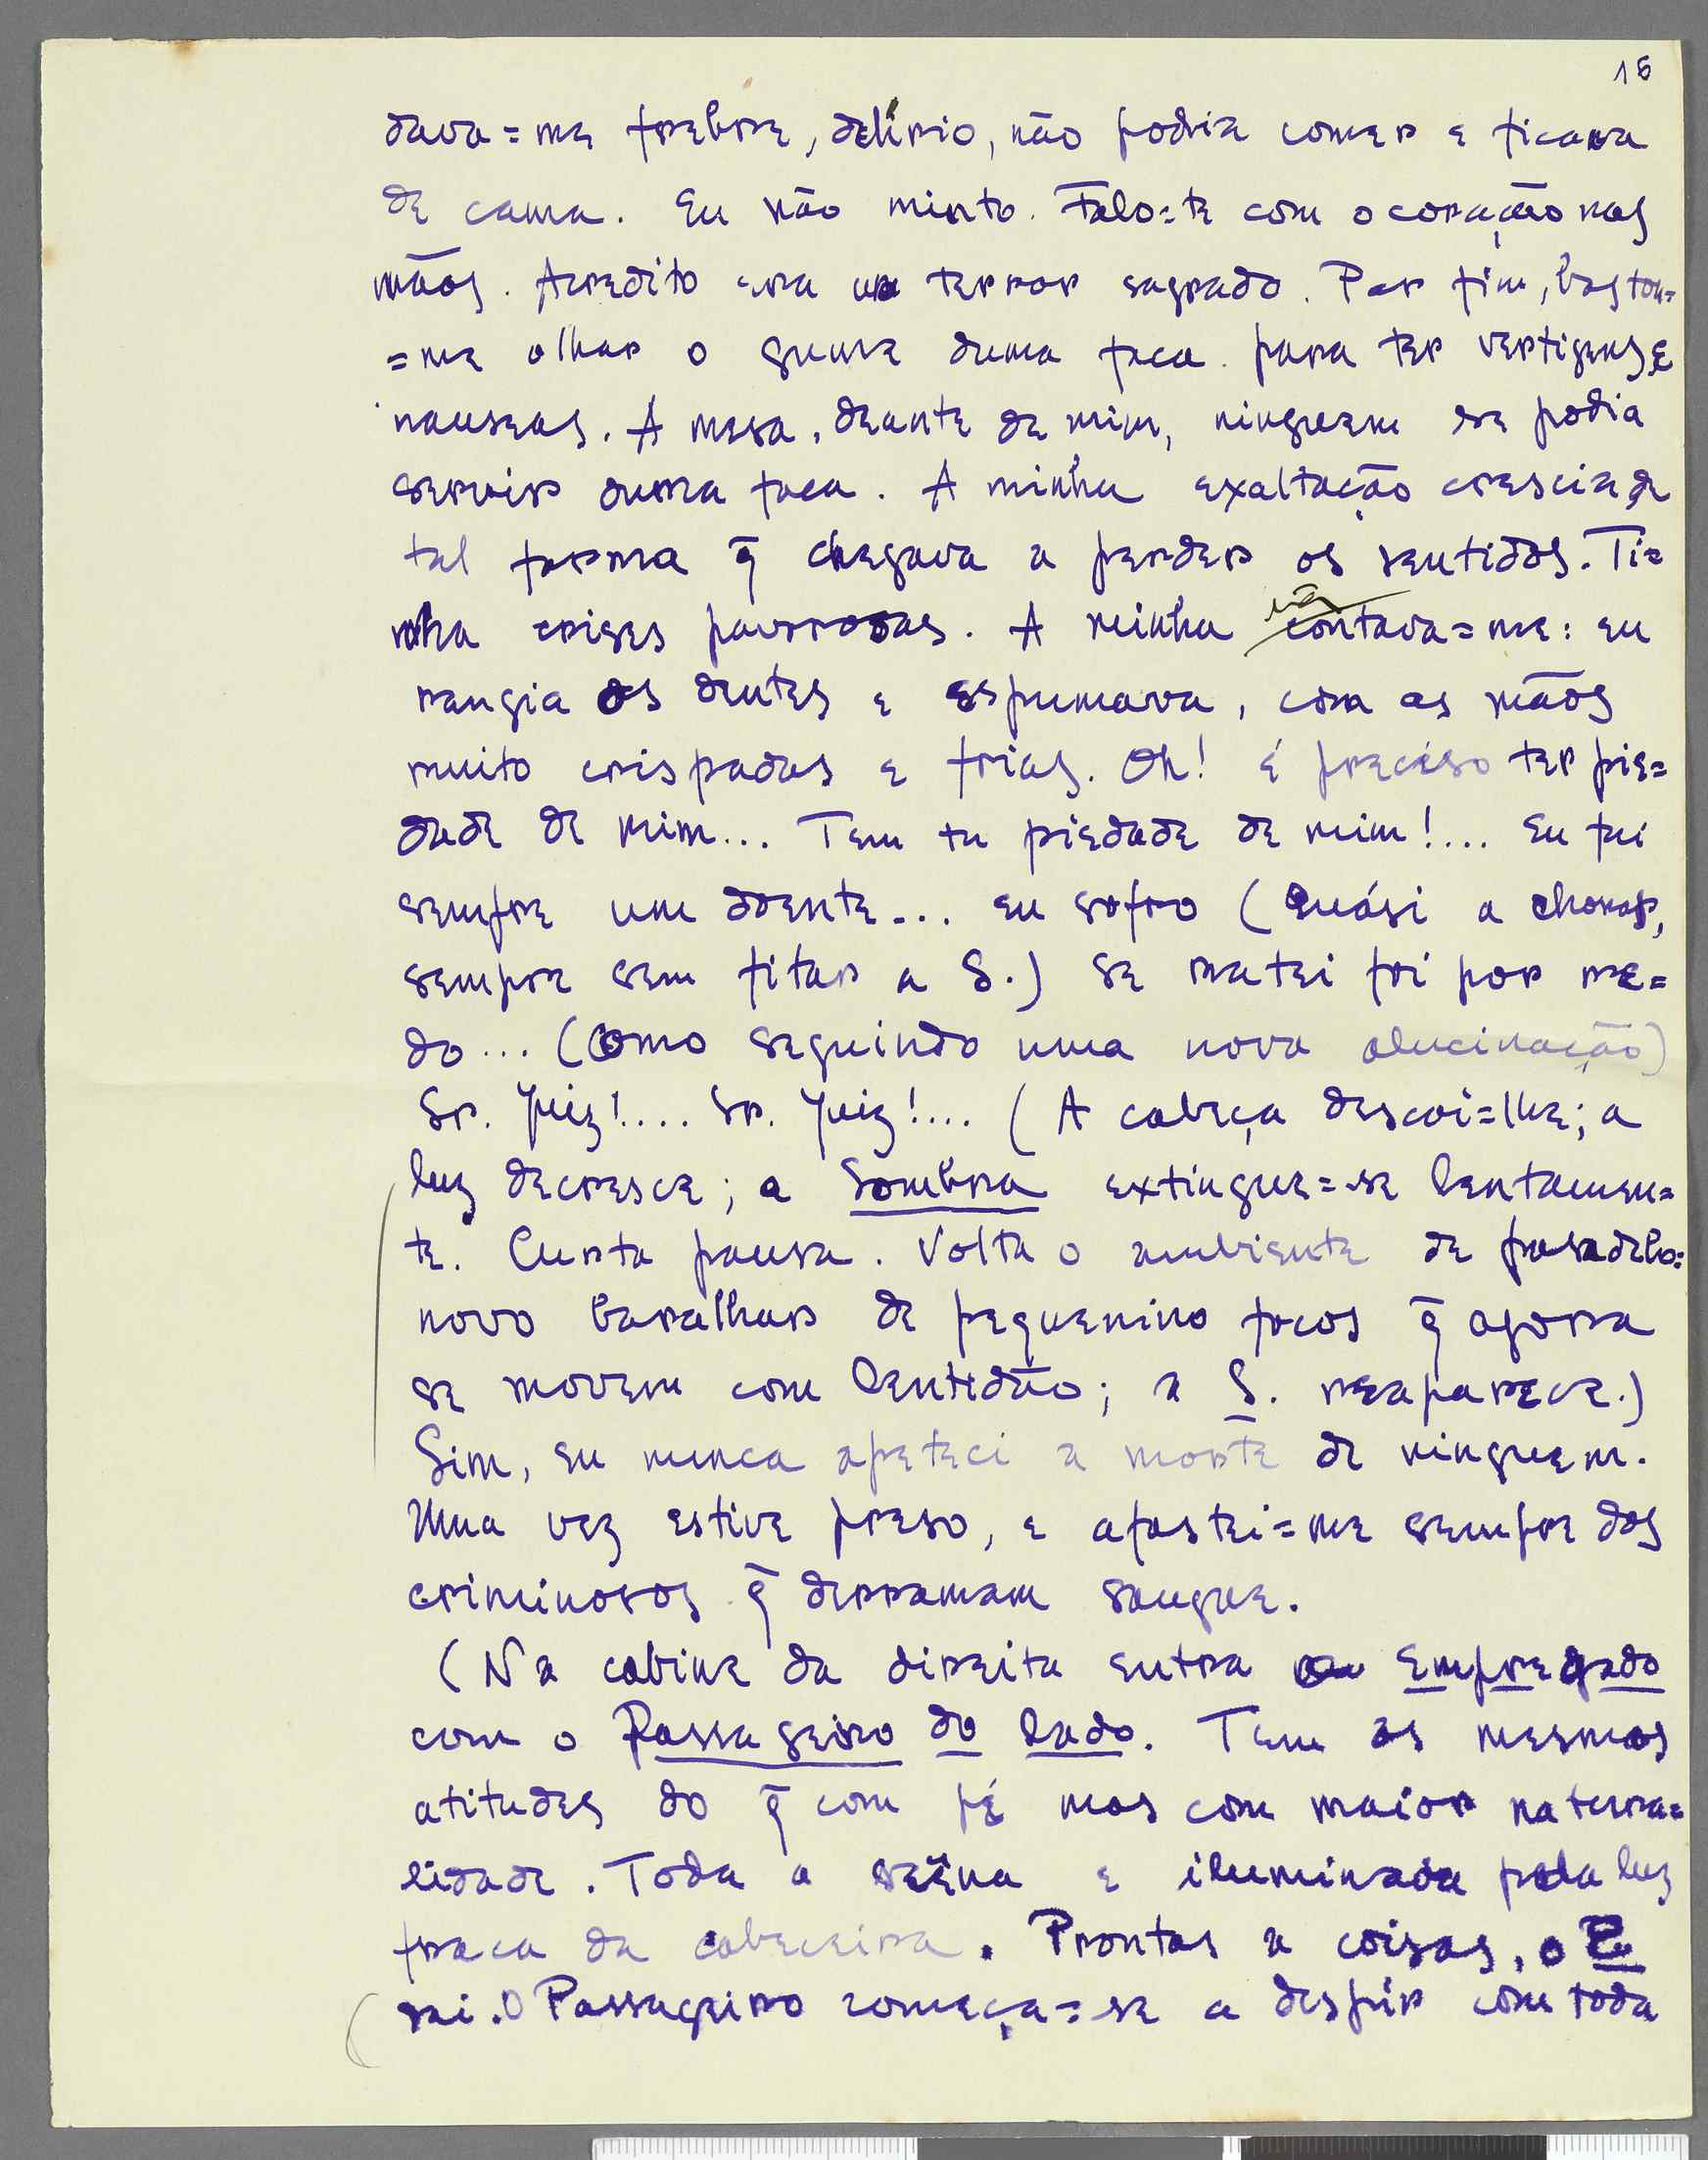 16
dava=me frebre, delírio, não podia comer e ficava
de cama. Eu não minto. Falo=te com o coração nas
mãos. Acredito era um terror sagrado. Por fim, bastou=
=me olhar o gume duma faca para ter vertigens e
nauseas. A mesa, deante de mim, ninguem se podia
servir duma faca. A minha exaltação crescia de
tal forma q̃ chegava a perder os sentidos. Ti=
nha crises pavorosas. A minha mãi contava=me: eu
rangia os dentes e espumava, com as mãos
muito crispadas e frias. Oh! é preciso ter pie=
dade de mim... Tem tu piedade de mim!... Eu fui
sempre um doente... eu sofro (Quási a chorar,
sempre sem fitar a S.) Se matei foi por me=
do... (Como seguindo uma nova alucinação)
Sr. Juiz!.... Sr. Juiz!.... (A cabeça descai=lhe; a
luz decresce; a Sombra extingue=se lentamen=
te. Curta pausa. Volta o ambiente de pesadelo:
novo baralhar de pequenino focos q̃ agora
se movem com lentidão; a S. reaparece.)
Sim, eu nunca apeteci a morte de ninguem.
Uma vez estive preso, e afastei=me sempre dos
criminosos q̃ derramam sangue.
(Na cabine da direita entra o Empregado
com o Passageiro do lado. Tem as mesmas
atitudes do q̃ com pé mas com maior natura=
lidade. Toda a scêna e iluminada pela luz
fraca da cabeceira. Prontas a coisas, o E
sai. O Passageiro começa=se a despir com toda